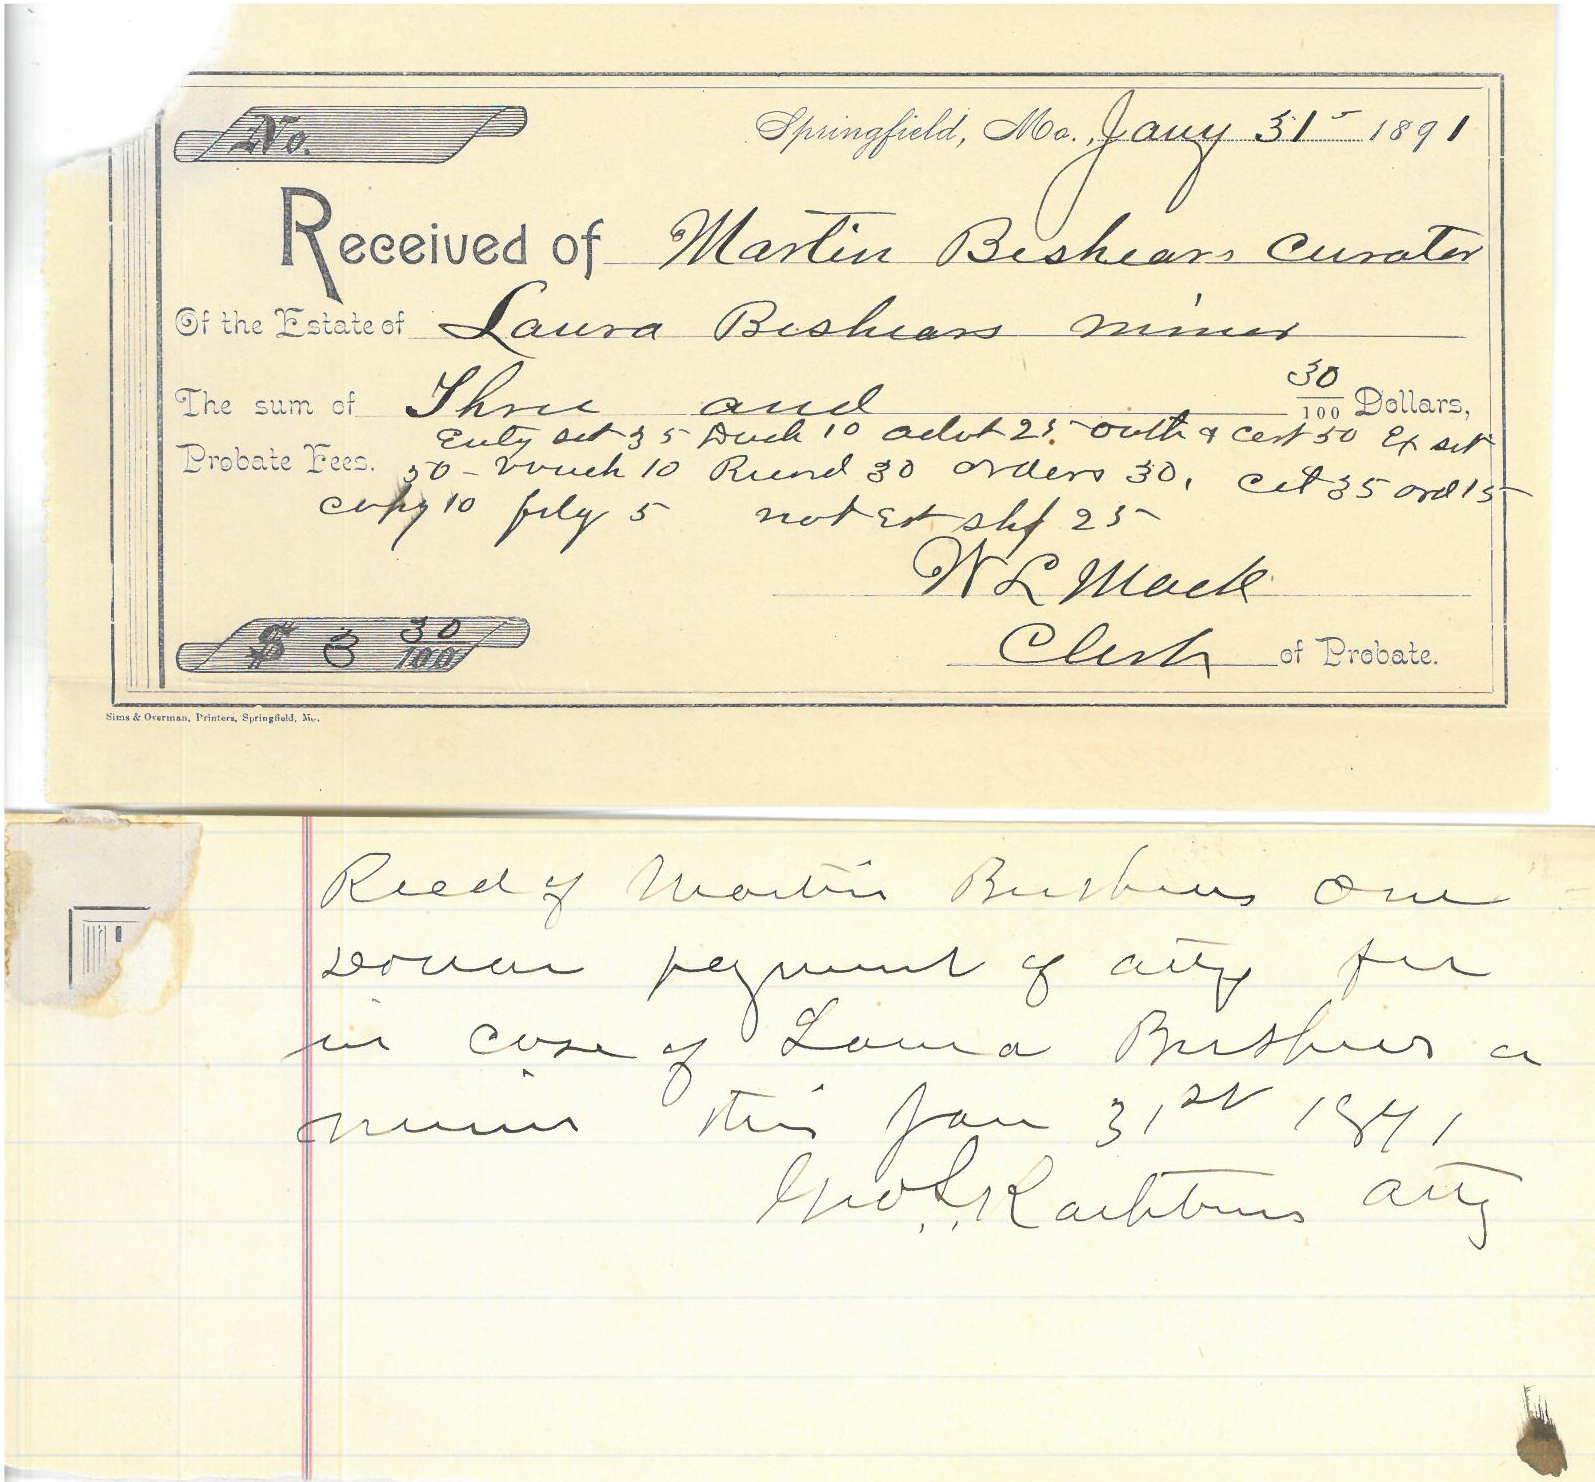 No.
Springfield, Mo., Jany 31st 1891
Received of Martin Beshears curator
Of the Estate of Laura Beshears minor
The sum of Three and 30/100 Dollars,
Probate Fees. Enty set 35 Dock 10 advt 25 oath & cert 50 Ex set
50 - vouch 10 Record 30 orders 30, cet 35 ord 15
copy 10 filg 5 not Est shf 25
W L Mack
$ 3 30/100
Clerk of Probate.
Sims & Overman, Printers, Springfield, Mo.
Recd of Martin Beshears one
Dollar payment of atty fee
in case of Laura Beshears a
minor this Jan 31st 1891
Geo. S. Rathbun atty